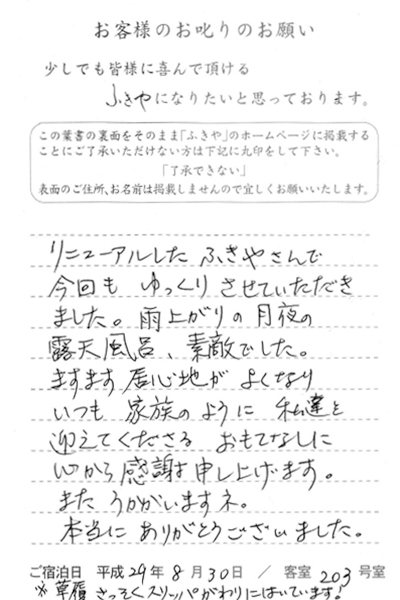 お客様のお叱りのお願い
少しでも皆様に喜んで頂ける
ふきやになりたいと思っております。
この葉書の裏面をそのまま「ふきや」のホームページに掲載する
ことにご了承いただけない方は下記に丸印をして下さい。
「了承できない」
表面のご住所、お名前は掲載しませんので宜しくお願いいたします。
リニューアルした ふきやさんで
今回も ゆっくり させていただき
ました。雨上がりの月夜の
露天風呂、素敵でした。
ますます居心地が よくなり
いつも 家族のように 私達を
迎えてくださる おもてなしに
心から感謝申し上げます。
また うかがいますネ。
本当に ありがとうございました。
ご宿泊日 平成29年8月30日 / 客室203号室
※草履 さっそくスリッパがわりにはいています!